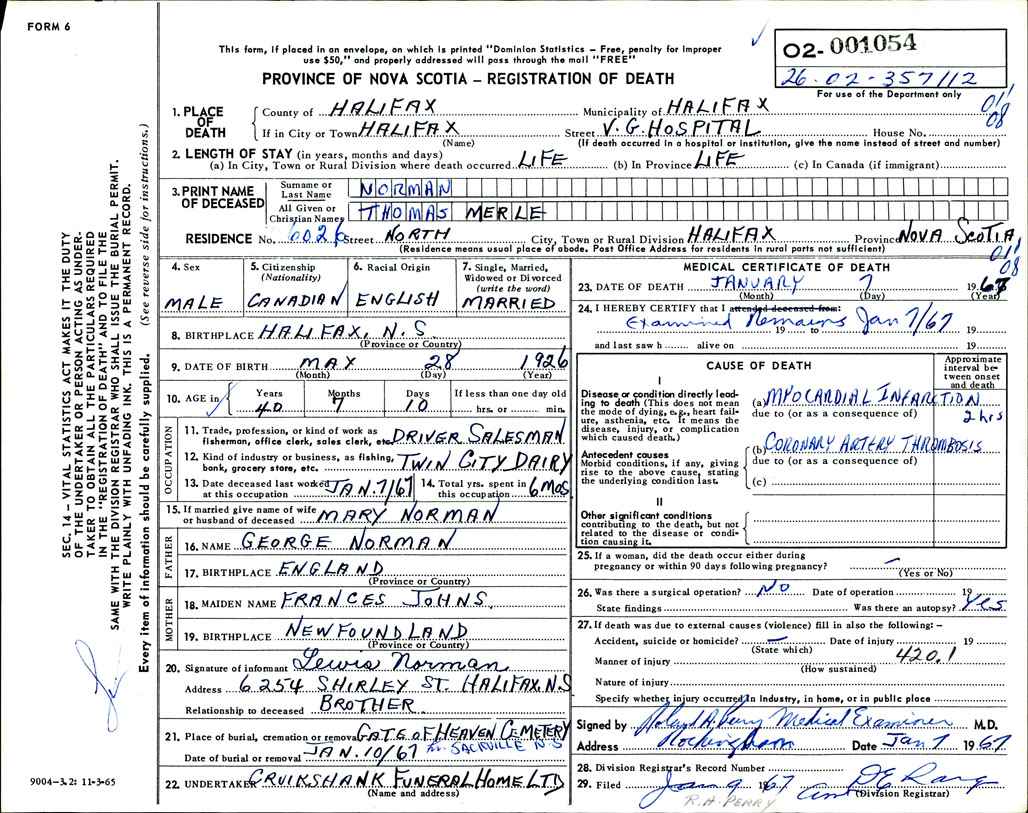 FORM 6
This form, if placed in an envelope, on which is printed "Dominion Statistics – Free, penalty for improper
use $50," and properly addressed will pass through the mail "FREE"
PROVINCE OF NOVA SCOTIA – REGISTRATION OF DEATH
02- 001054
26-02-357112
For use of the Department only
011
08
SEC. 14 – VITAL STATISTICS ACT MAKES IT THE DUTY
OF THE UNDERTAKER OR PERSON ACTING AS UNDER-
TAKER TO OBTAIN ALL THE PARTICULARS REQUIRED
IN THE "REGISTRATION OF DEATH" AND TO FILE THE
SAME WITH THE DIVISION REGISTRAR WHO SHALL ISSUE THE BURIAL PERMIT.
WRITE PLAINLY WITH UNFADING INK. THIS IS A PERMANENT RECORD.
Every item of information should be carefully supplied. (See reverse side for instructions.)
1. PLACE OF DEATH
County of HALIFAX Municipality of HALIFAX
If in City or Town HALIFAX Street V.G. HOSPITAL House No.
(Name) (If death occurred in a hospital or institution, give the name instead of street and number)
2. LENGTH OF STAY (in years, months and days)
(a) In City, Town or Rural Division where death occurred LIFE (b) In Province LIFE (c) In Canada (if immigrant)
3. PRINT NAME OF DECEASED
Surname or Last Name NORMAN
All Given or Christian Names THOMAS MERLE
RESIDENCE No. 6026 Street NORTH City, Town or Rural Division HALIFAX Province NOVA SCOTIA
(Residence means usual place of abode. Post Office Address for residents in rural parts not sufficient)
011
08
4. Sex MALE
5. Citizenship (Nationality) CANADIAN
6. Racial Origin ENGLISH
7. Single, Married, Widowed or Divorced (write the word) MARRIED
8. BIRTHPLACE HALIFAX, N.S.
(Province or Country)
9. DATE OF BIRTH MAY 28 1926
(Month) (Day) (Year)
10. AGE in Years 40 Months 7 Days 10 If less than one day old hrs. or min.
OCCUPATION
11. Trade, profession, or kind of work as
fisherman, office clerk, sales clerk, etc. DRIVER SALESMAN
12. Kind of industry or business, as fishing,
bank, grocery store, etc. TWIN CITY DAIRY
13. Date deceased last worked at this occupation JAN. 7/67 14. Total yrs. spent in this occupation 6 MOS
15. If married give name of wife or husband of deceased MARY NORMAN
FATHER
16. NAME GEORGE NORMAN
17. BIRTHPLACE ENGLAND
(Province or Country)
MOTHER
18. MAIDEN NAME FRANCES JOHNS.
19. BIRTHPLACE NEWFOUNDLAND
(Province or Country)
20. Signature of informant Lewis Norman
Address 6254 SHIRLEY ST. HALIFAX, N.S
Relationship to deceased BROTHER
21. Place of burial, cremation or removal GATE OF HEAVEN CEMETERY
Date of burial or removal JAN. 10/67 SACKVILLE N.S
22. UNDERTAKER CRUIKSHANK FUNERAL HOME LTD
(Name and address)
9004-3.2: 11-3-65
MEDICAL CERTIFICATE OF DEATH
23. DATE OF DEATH JANUARY 7 1967
(Month) (Day) (Year)
24. I HEREBY CERTIFY that I attended deceased from:
Examined Remains Jan 7/67 19 to 19
and last saw h alive on 19
CAUSE OF DEATH
Approximate interval between onset and death
I
Disease or condition directly leading to death (This does not mean the mode of dying, e.g., heart failure, asthenia, etc. It means the disease, injury, or complication which caused death.)
(a) MYOCARDIAL INFARCTION 2 hrs
due to (or as a consequence of)
Antecedent causes
Morbid conditions, if any, giving rise to the above cause, stating the underlying condition last.
(b) CORONARY ARTERY THROMBOSIS
due to (or as a consequence of)
(c)
II
Other significant conditions
contributing to the death, but not related to the disease or condition causing it.
25. If a woman, did the death occur either during
pregnancy or within 90 days following pregnancy? –
(Yes or No)
26. Was there a surgical operation? NO Date of operation 19
State findings Was there an autopsy? Yes
27. If death was due to external causes (violence) fill in also the following: –
Accident, suicide or homicide? – Date of injury 19
(State which) 420.1
Manner of injury
(How sustained)
Nature of injury
Specify whether injury occurred in industry, in home, or in public place
Signed by Roland A. Perry Medical Examiner M.D.
Address Rockingham Date Jan 7 1967
28. Division Registrar's Record Number
29. Filed Jan 9 1967
(Division Registrar)
R.H. PERRY